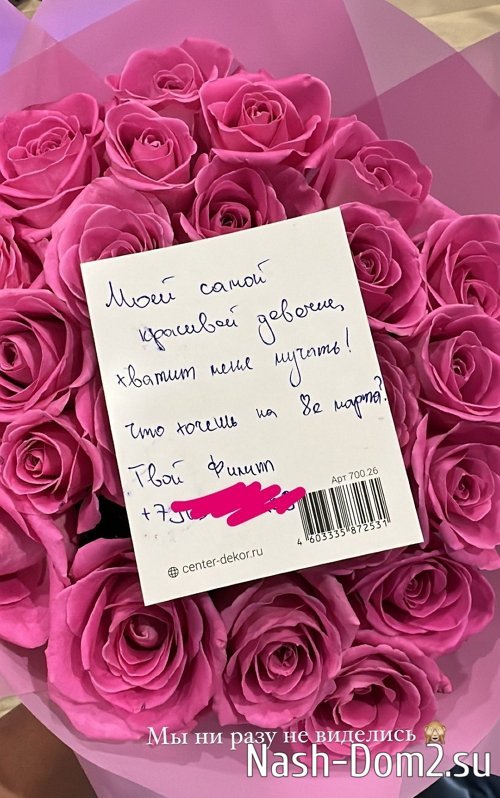 Моей самой
красивой девочке,
хватит меня мучить!
Что хочешь на 8е марта?
Твой Филипп
+79
Арт 700.26
4 603335 872531
center-dekor.ru
Мы ни разу не виделись 🙈
Nash-Dom2.su